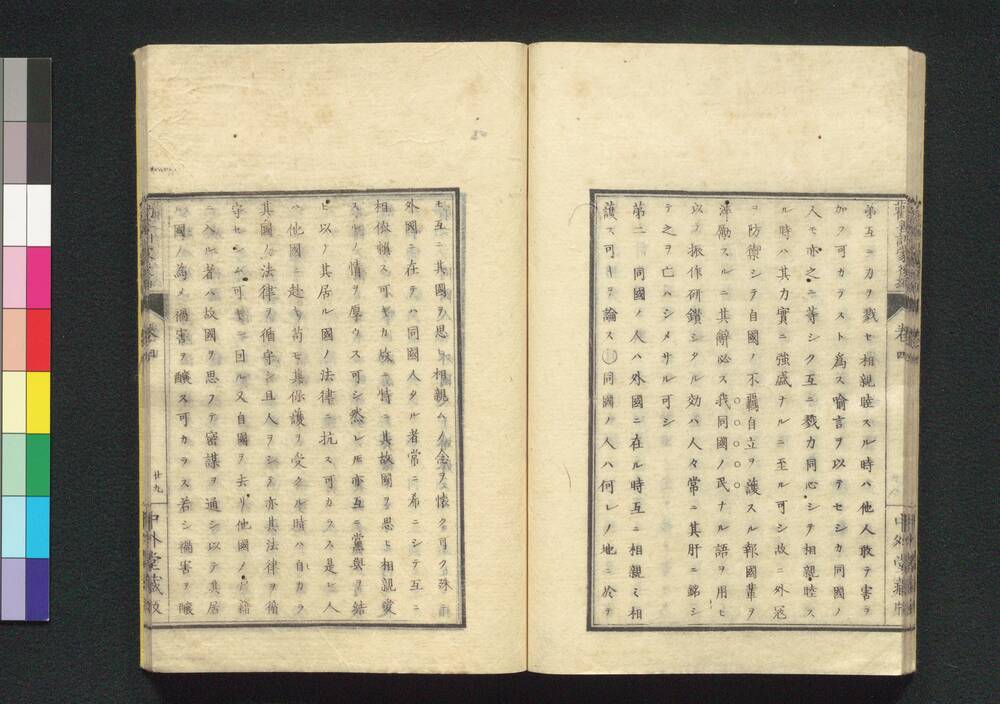 弟互ニ力ヲ戮セ相親睦スル時ハ他人敢テ害ヲ
加フ可カラスト為ス喩言ヲ以テセシカ同國ノ
人モ亦之ニ等シク互ニ戮力同心シテ相親睦ス
ル時ハ其力實ニ強盛ナルニ至ル可シ故ニ外冦
ヲ防禦シテ自國ノ不羈自立ヲ護スル報國軰ヲ
勵スルニ其辭必ス我同國ノ民ナル語ヲ用ヒ
以テ振作研鑽シタル効ハ人々常ニ其肝ニ銘シ
テ之ヲ亡ハシメサル可シ
第二 同國ノ人ハ外國ニ在ル時互ニ相親ミ相
護ス可キヲ論ス○同國ノ人ハ何レノ地ニ於テ
卷四
中外堂藏版
モ互ニ其國ヲ思ヒ相親ムノ念ヲ懐ク可ク殊ニ
外國ニ在テハ同國人タル者常ニ希ニシテ互ニ
相依頼ス可キカ故ニ特ニ其故國ヲ思ヒ相親愛
スルノ情ヲ厚ウス可シ然レ𪜈亦互ニ黨與ヲ結
ヒ以テ其居ル國ノ法律ニ抗ス可カラス是レ人
ハ他國ニ赴キ苟モ其保護ヲ受クル時ハ自カラ
其國ノ法律ヲ循守シ且人ヲシテ亦其法律ヲ循
守セシム可キニ因ル又自國ヲ去リ他國ノ戸籍
ニ入ル者ハ故國ヲ思フテ密謀ヲ通シ以テ其居
國ノ為メ禍害ヲ釀ス可カラス若シ禍害ヲ釀
卷四
廿九
中外堂藏版